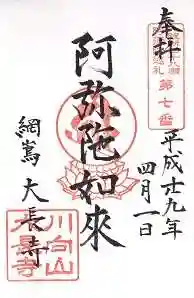 奉拝
第七番
平成廿九年
四月一日
阿弥陀如来
網嶌 大長寺
川向山
大長寺